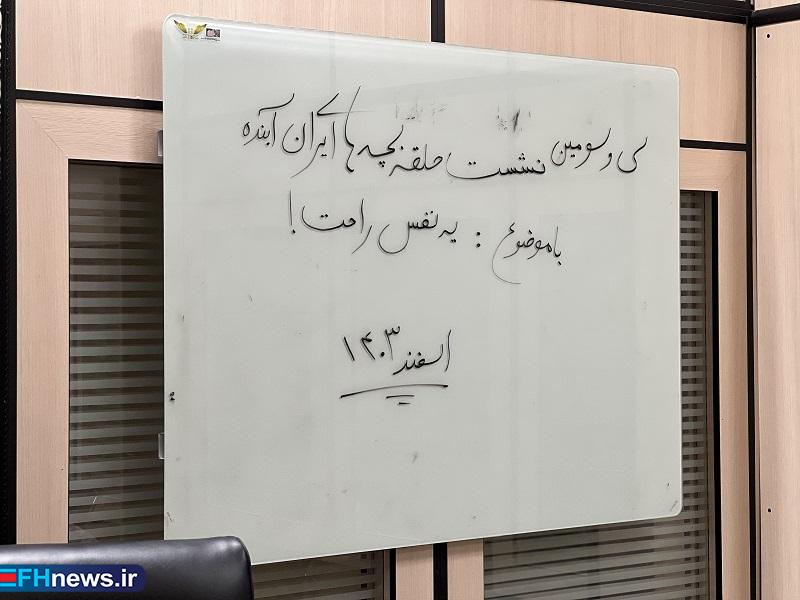 سی و سومین نشست حلقه بچه ها ایران آینده
با موضوع : یه نفس راحت !
اسفند ۱۴۰۳
FHnews.ir